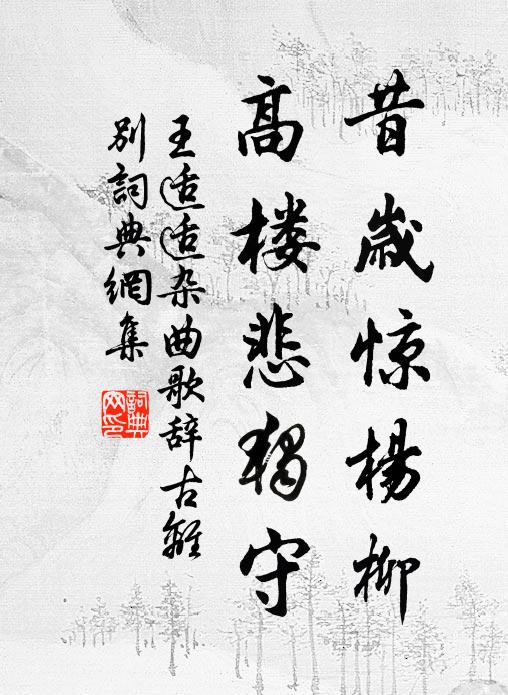 昔歲惊楊柳
高楼悲獨守
王适适杂曲歌辞古離
別詞典網集
詞典网印